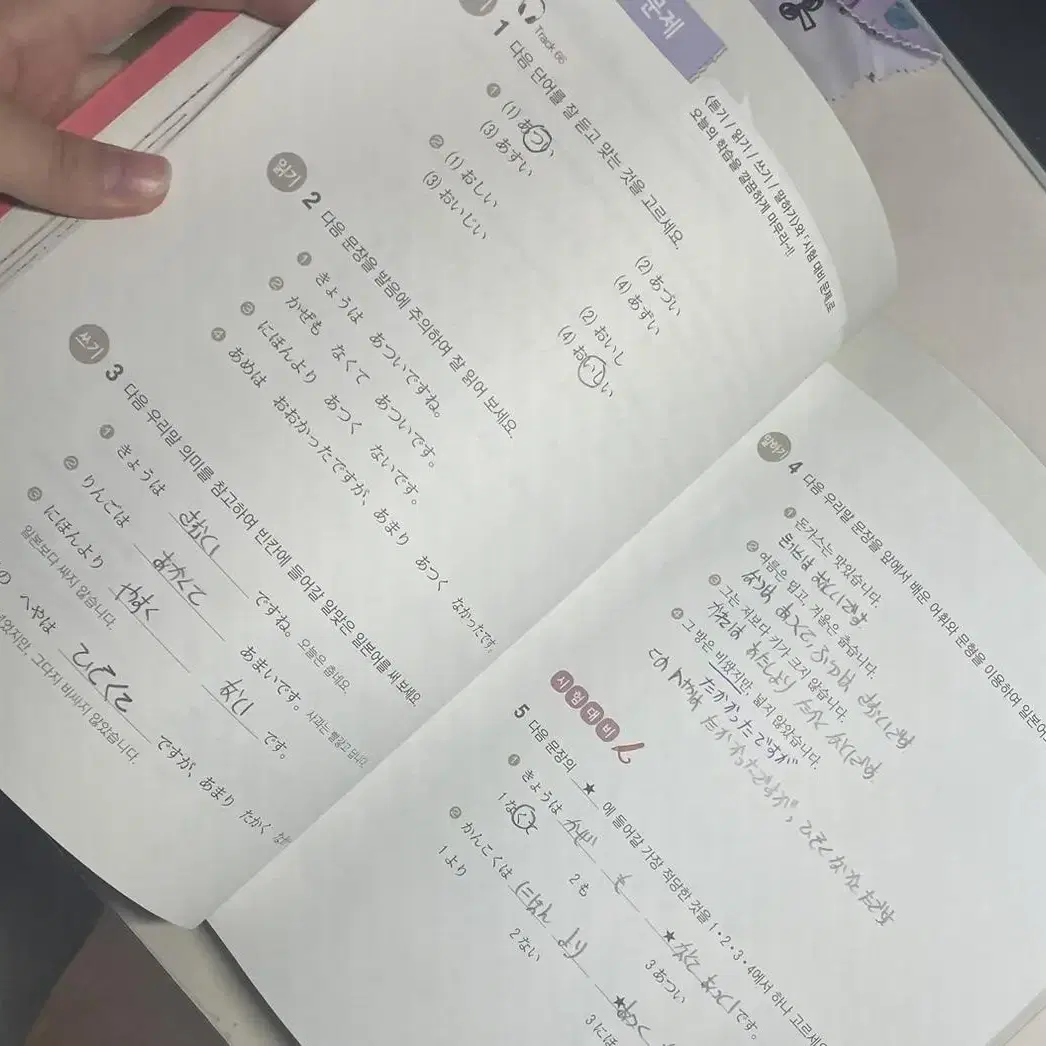 문제
〈듣기 / 읽기 / 쓰기 / 말하기〉와 「시험 대비 문제」로
오늘의 학습을 깔끔하게 마무리~!!
Track 66
1 다음 단어를 잘 듣고 맞는 것을 고르세요.
❶ (1) あつい (2) あづい
(3) あすい (4) あずい
❷ (1) おしい (2) おいし
(3) おいじい (4) おいしい
읽기
2 다음 문장을 발음에 주의하여 잘 읽어 보세요.
❶ きょうは あついですね。
❷ かぜも なくて あついです。
❸ にほんより あつく ないです。
❹ あめは おおかったですが、あまり あつく なかったです。
쓰기
3 다음 우리말 의미를 참고하여 빈칸에 들어갈 알맞은 일본어를 써 보세요.
❶ きょうは さむい ですね。 오늘은 춥네요.
❷ りんごは あかくて あまいです。 사과는 빨갛고 답니다.
❸ にほんより やすく ない です。
일본보다 싸지 않습니다.
の へやは ですが、あまり たかく
그다지 비싸지 않았습니다.
말하기
4 다음 우리말 문장을 앞에서 배운 어휘와 문형을 이용하여
❶ 돈가스는 맛있습니다.
❷ 여름은 덥고, 겨울은 춥습니다.
❸ 그는 저보다 키가 크지 않습니다.
かれは わたしより たかく ないです
❹ 그 방은 비쌌지만 넓지 않았습니다.
たかかったですが
このへやは たかかったですが, ひろくなかったです
시험대비
5 다음 문장의 ★ 에 들어갈 가장 적당한 것을 1・2・3・4에서 하나 고르세요
❶ きょうは かぜ も ★ なくて あつい です。
1 なくて 2 も 3 あつい
❷ かんこくは にほん より ★ あつく
1 より 2 ない 3 にほ